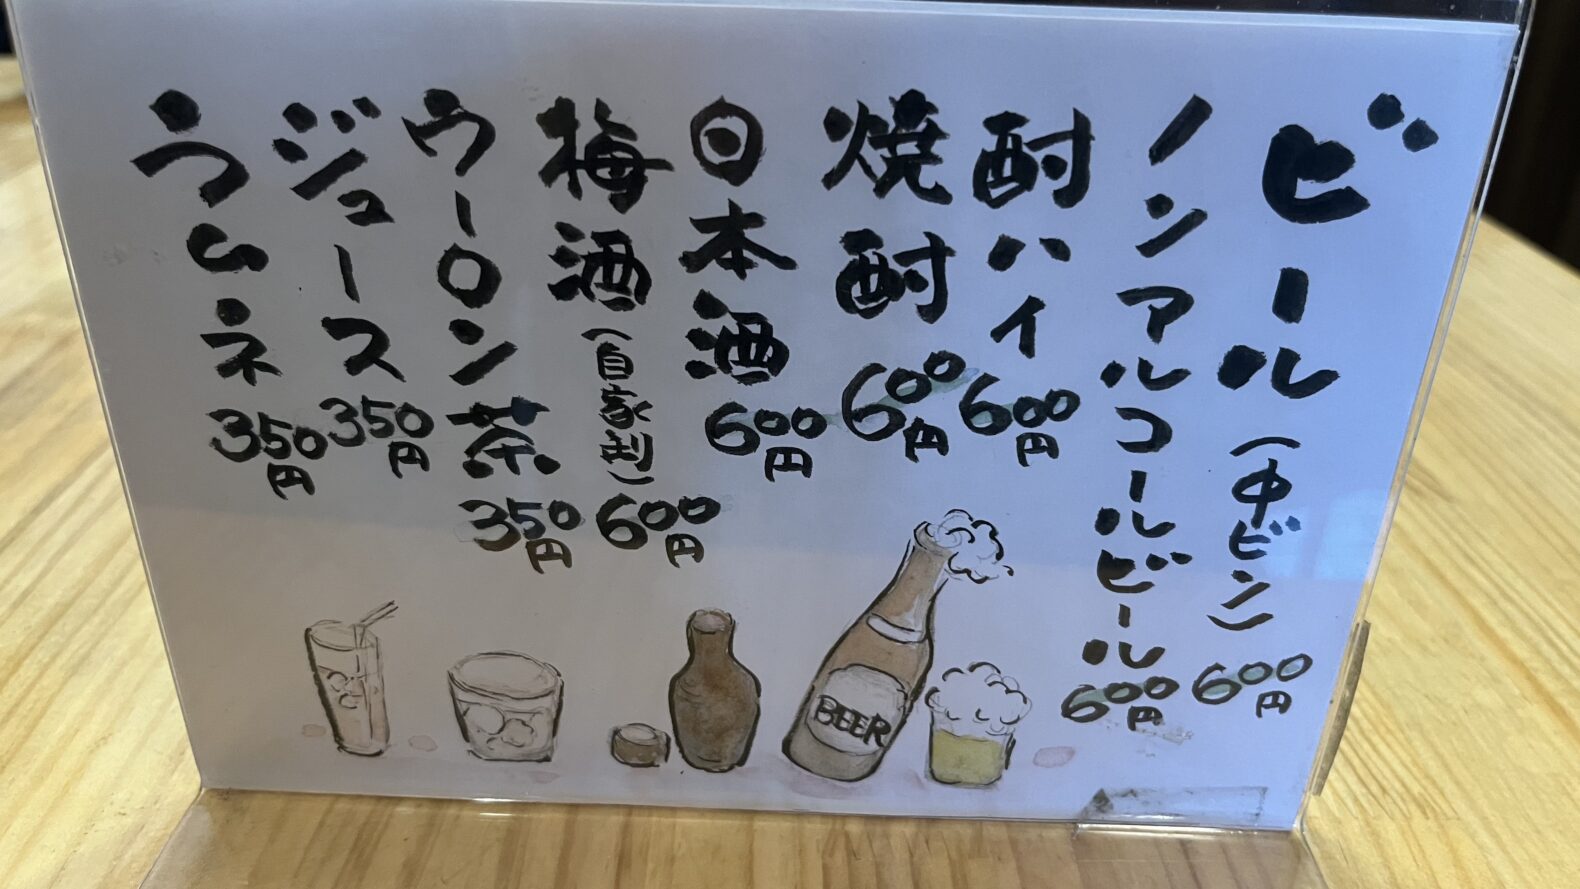 ビール(中ビン)600円
ノンアルコールビール600円
酎ハイ600円
焼酎600円
日本酒600円
梅酒(自家製)600円
ウーロン茶350円
ジュース350円
ラムネ350円
BEER